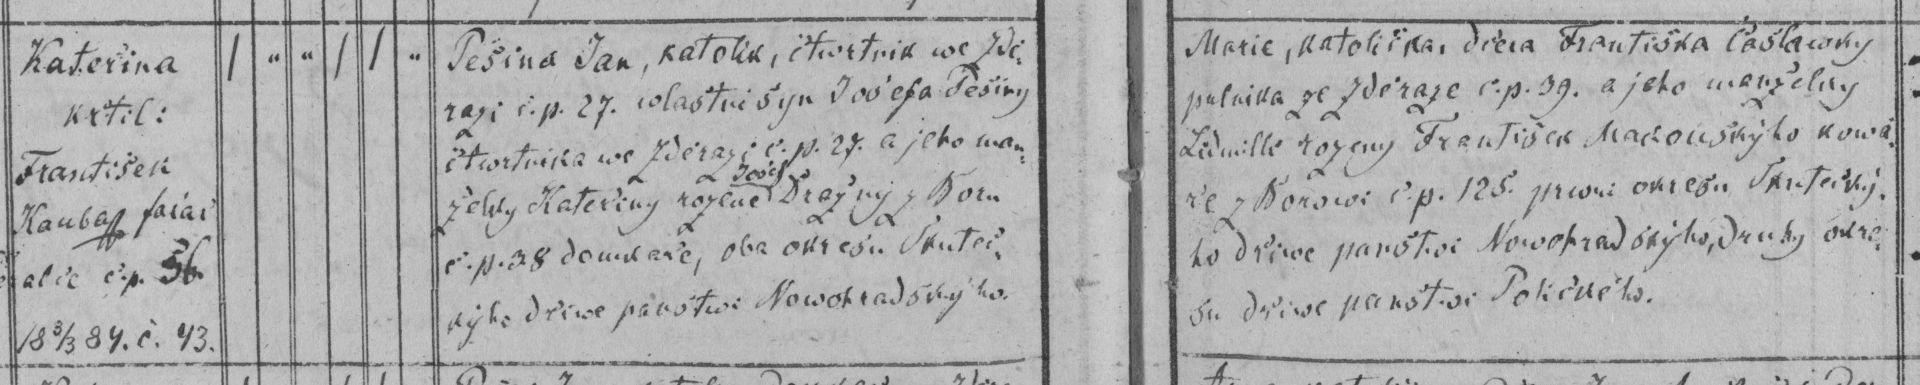 Kateřina / " " / / "
křtil:
František
Kauba farář
č.p. 56
18 3/3 84. č. 43.
Pešina Jan, katolik, čtwrtnik we Zdé-
razi č.p. 27. wlastni syn Josefa Pešiny
čtwrtnika we Zdérazi č.p. 27. a jeho man-
želky Kateřiny rozené Josef Dražný z Boru
č.p. 38 domkaře, oba okresu Skuteč-
kýho dřiwe panstwi Nowohradskýho.
Marie, katolička, dcera Františka Časlawsky
pulnika ze Zdéraze č.p. 39. a jeho manželky
Lidmilli rozeny František Makouskýho kowá-
ře z Borowi č.p. 125. prwni okresu Skutečský-
ho dřiwe panstwi Nowohradskýho, druhy okre-
su dřiwe panstwi Poličkého.